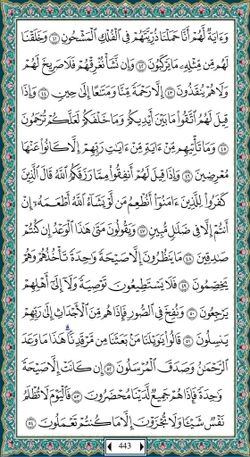 وَءَايَةٌ لَّهُمْ أَنَّا حَمَلْنَا ذُرِّيَّتَهُمْ فِى ٱلْفُلْكِ ٱلْمَشْحُونِ ٤١ وَخَلَقْنَا
لَهُم مِّن مِّثْلِهِۦ مَا يَرْكَبُونَ ٤٢ وَإِن نَّشَأْ نُغْرِقْهُمْ فَلَا صَرِيخَ لَهُمْ
وَلَا هُمْ يُنقَذُونَ ٤٣ إِلَّا رَحْمَةً مِّنَّا وَمَتَٰعًا إِلَىٰ حِينٍ ٤٤ وَإِذَا
قِيلَ لَهُمُ ٱتَّقُوا۟ مَا بَيْنَ أَيْدِيكُمْ وَمَا خَلْفَكُمْ لَعَلَّكُمْ تُرْحَمُونَ
٤٥ وَمَا تَأْتِيهِم مِّنْ ءَايَةٍ مِّنْ ءَايَٰتِ رَبِّهِمْ إِلَّا كَانُوا۟ عَنْهَا
مُعْرِضِينَ ٤٦ وَإِذَا قِيلَ لَهُمْ أَنفِقُوا۟ مِمَّا رَزَقَكُمُ ٱللَّهُ قَالَ ٱلَّذِينَ
كَفَرُوا۟ لِلَّذِينَ ءَامَنُوٓا۟ أَنُطْعِمُ مَن لَّوْ يَشَآءُ ٱللَّهُ أَطْعَمَهُۥٓ إِنْ
أَنتُمْ إِلَّا فِى ضَلَٰلٍ مُّبِينٍ ٤٧ وَيَقُولُونَ مَتَىٰ هَٰذَا ٱلْوَعْدُ إِن كُنتُمْ
صَٰدِقِينَ ٤٨ مَا يَنظُرُونَ إِلَّا صَيْحَةً وَٰحِدَةً تَأْخُذُهُمْ وَهُمْ
يَخِصِّمُونَ ٤٩ فَلَا يَسْتَطِيعُونَ تَوْصِيَةً وَلَآ إِلَىٰٓ أَهْلِهِمْ
يَرْجِعُونَ ٥٠ وَنُفِخَ فِى ٱلصُّورِ فَإِذَا هُم مِّنَ ٱلْأَجْدَاثِ إِلَىٰ رَبِّهِمْ
يَنسِلُونَ ٥١ قَالُوا۟ يَٰوَيْلَنَا مَنۢ بَعَثَنَا مِن مَّرْقَدِنَا ۜ هَٰذَا مَا وَعَدَ
ٱلرَّحْمَٰنُ وَصَدَقَ ٱلْمُرْسَلُونَ ٥٢ إِن كَانَتْ إِلَّا صَيْحَةً
وَٰحِدَةً فَإِذَا هُمْ جَمِيعٌ لَّدَيْنَا مُحْضَرُونَ ٥٣ فَٱلْيَوْمَ لَا تُظْلَمُ
نَفْسٌ شَيْـًٔا وَلَا تُجْزَوْنَ إِلَّا مَا كُنتُمْ تَعْمَلُونَ ٥٤
443